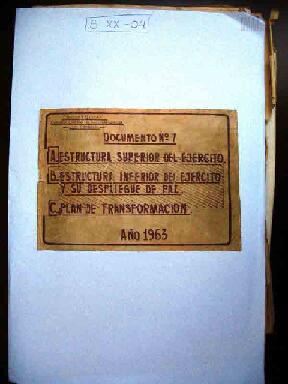 B XX-04
DOCUMENTO Nº 7
A. ESTRUCTURA SUPERIOR DEL EJERCITO.
B. ESTRUCTURA INFERIOR DEL EJERCITO
Y SU DESPLIEGUE DE PAZ.
C. PLAN DE TRANSFORMACION.
AÑO 1963